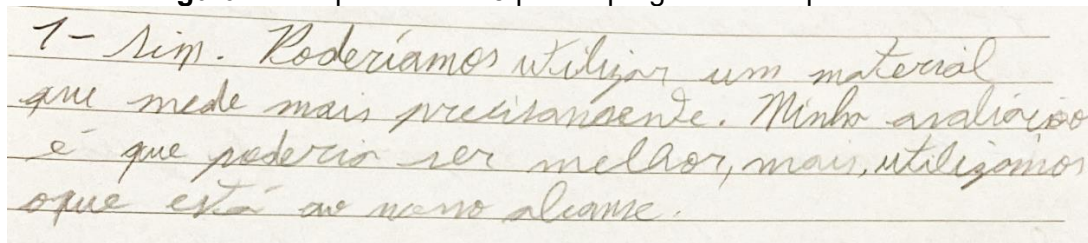 1- Sim. Poderíamos utilizar um material
que mede mais precisamente. Minha avaliação
é que poderia ser melhor, mais, utilizamos
oque está ao nosso alcanse.